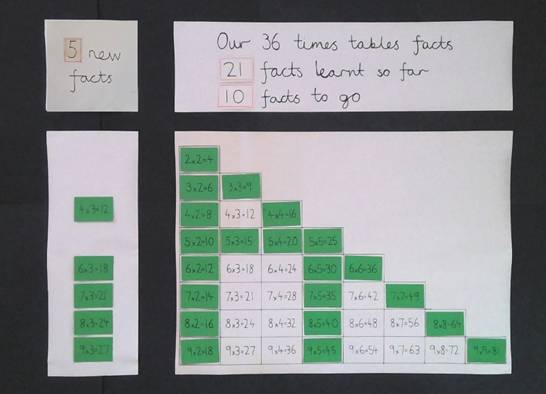 5 new
facts
Our 36 times tables facts
21 facts learnt so far
10 facts to go
4x3=12
6x3=18
7x3=21
8x3=24
9x3=27
2x2=4
3x2=6 3x3=9
4x2=8 4x3=12 4x4=16
5x2=10 5x3=15 5x4=20 5x5=25
6x2=12 6x3=18 6x4=24 6x5=30 6x6=36
7x2=14 7x3=21 7x4=28 7x5=35 7x6=42 7x7=49
8x2=16 8x3=24 8x4=32 8x5=40 8x6=48 8x7=56 8x8=64
9x2=18 9x3=27 9x4=36 9x5=45 9x6=54 9x7=63 9x8=72 9x9=81